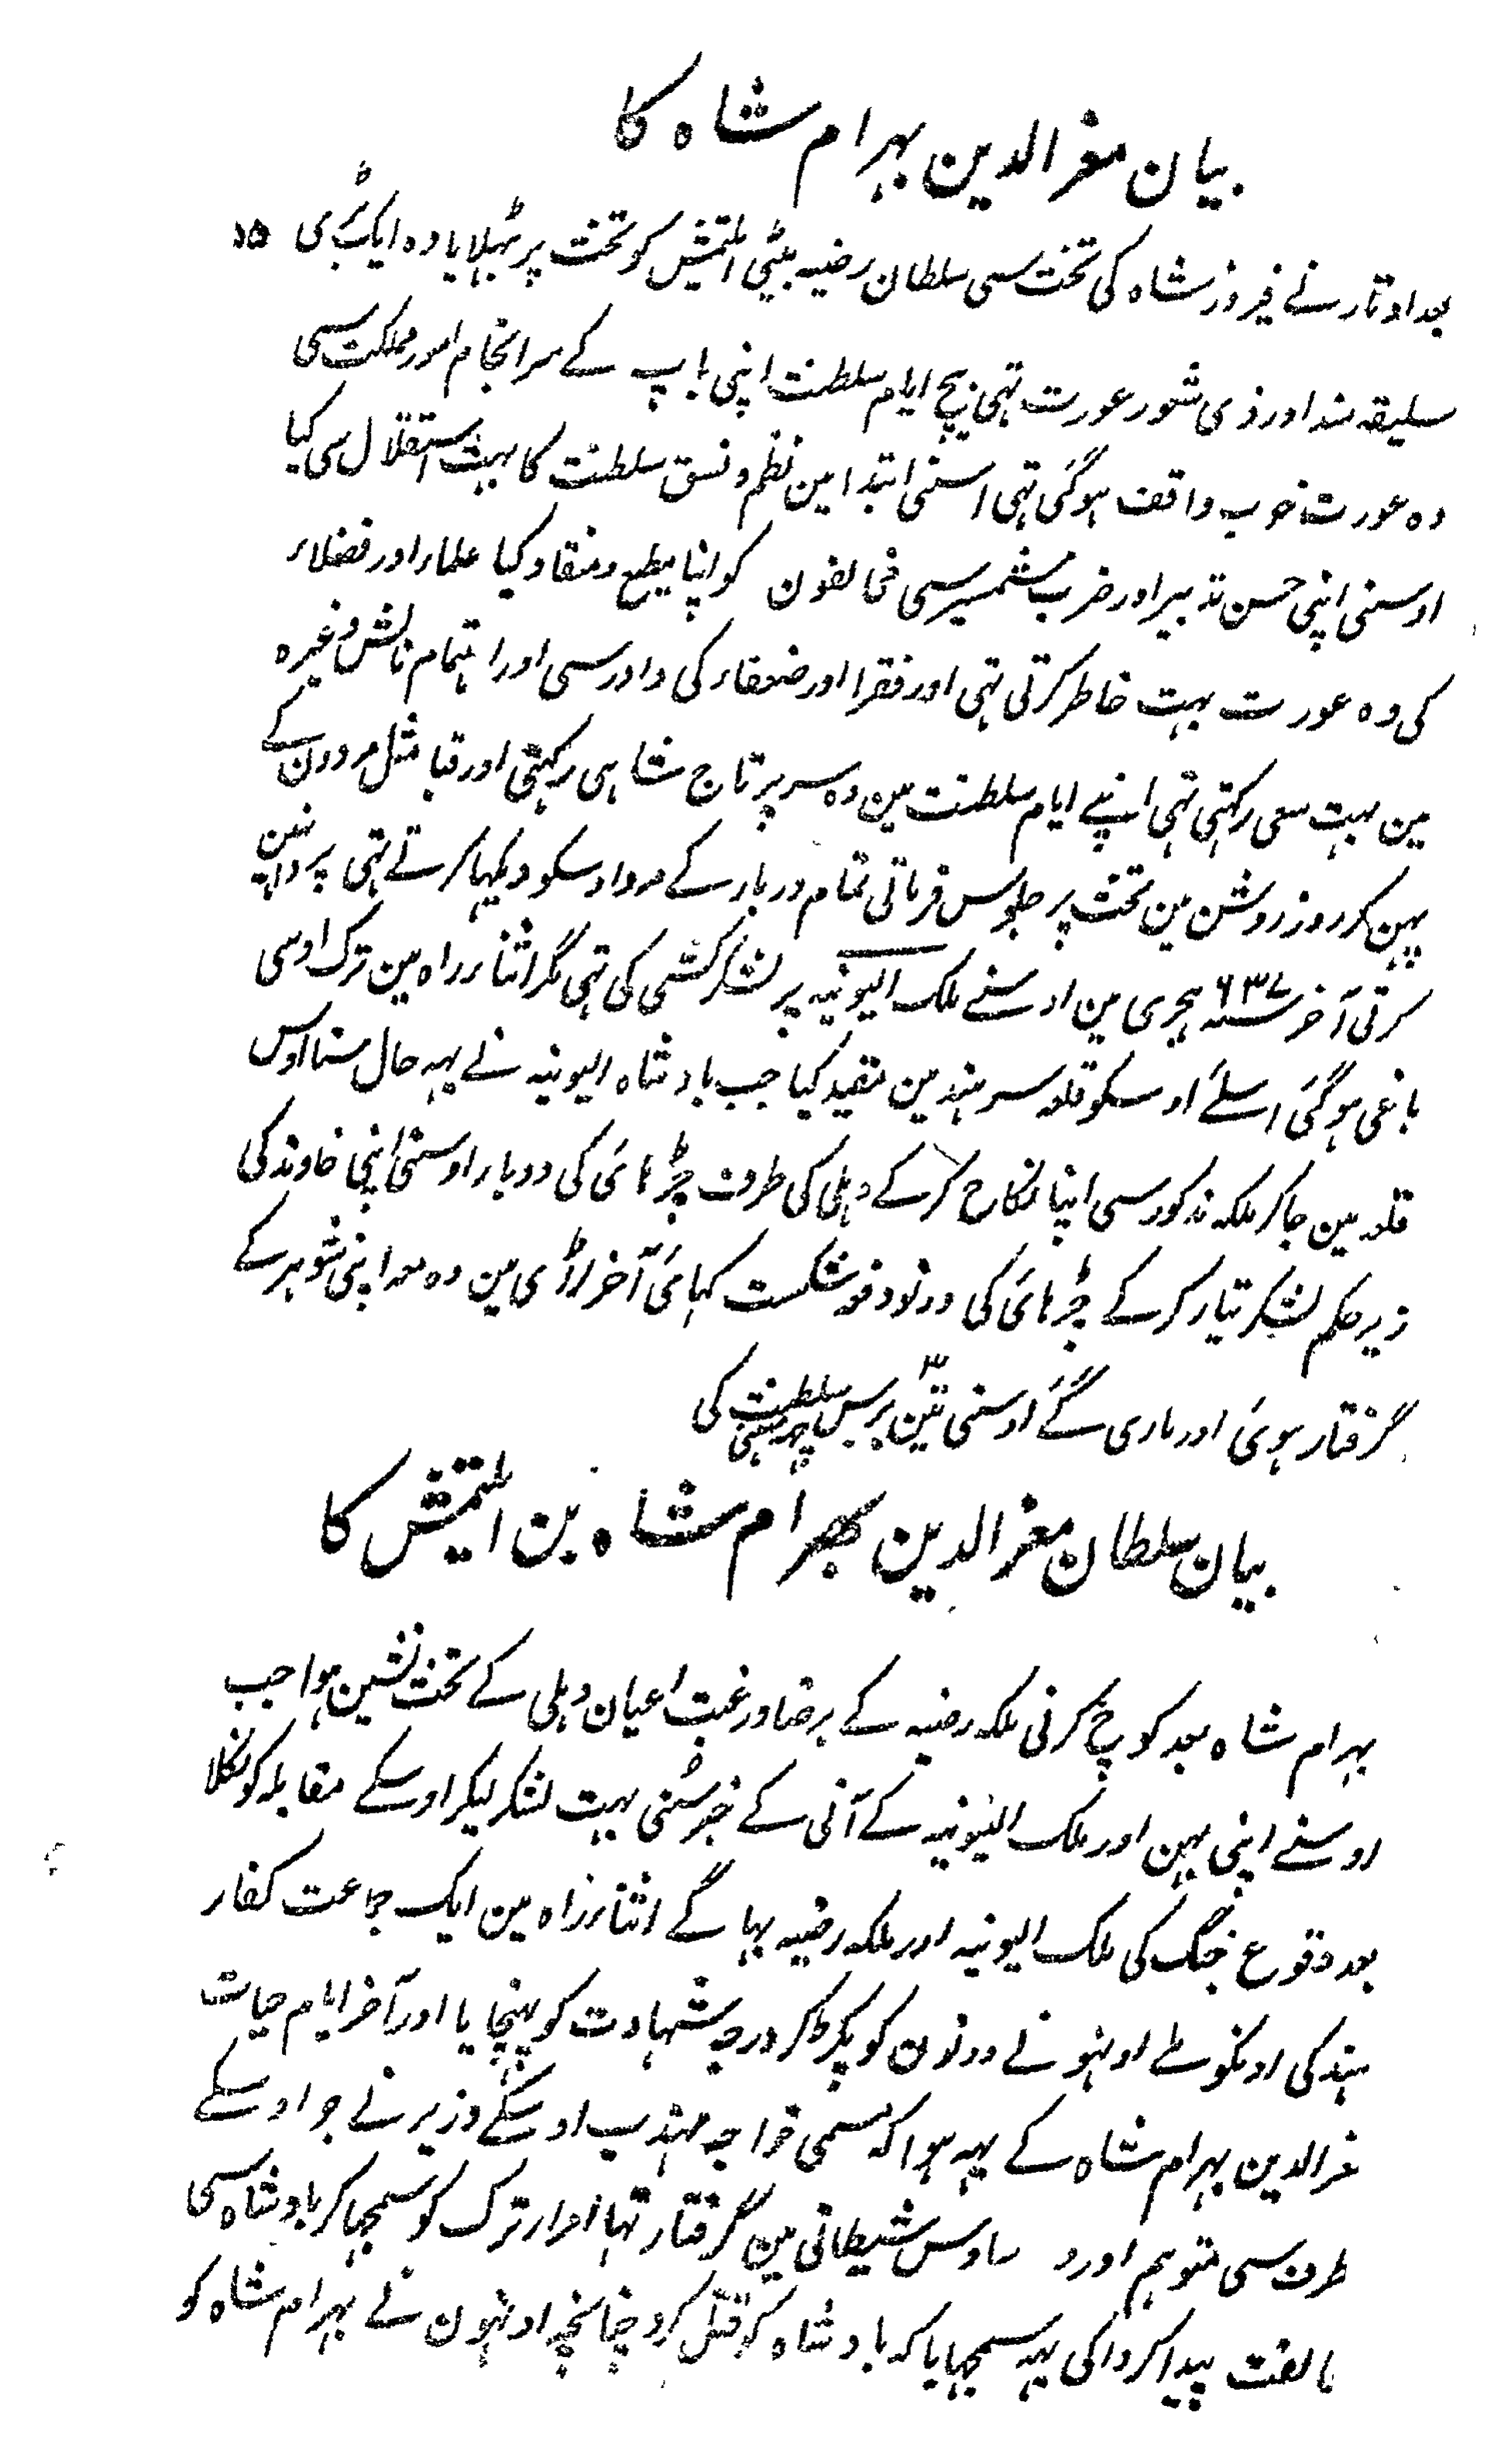 بیان معزالدین بہرام شاہ کا
بعد اوتارنے فیروز شاہ کی تخت سی سلطان رضیہ بیٹی التمش کو تخت پر بٹھلایا وہ ایک بڑی ۵۱
سلیقہ مند اور ذی شعور عورت تہی بیچ ایام سلطنت اپنی باپ کے سرانجام امور مملکت سی
وہ عورت خوب واقف ہوگئی تہی اسنی ابتدا مین نظم و نسق سلطنت کا بہت استقلال سی کیا
اوسنی اپنی حسن تدبیر اور ضرب شمشیر سی مخالفون کو اپنا مطیع و منقاد کیا علماء اور فضلاء
کی وہ عورت بہت خاطر کرتی تہی اور فقرا اور ضعفاء کی دادرسی اور اہتمام نالش وغیرہ
مین بہت سعی رکہتی تہی اپنے ایام سلطنت مین وہ سر پر تاج شاہی رکہتی اور قبا مثل مردون کے
پہن کر روز روشن مین تخت پر جلوس فرماتی تمام دربار کے مرد اوسکو دیکہا کرتے تہی پردا نہین
کرتی آخر سنہ ۶۳۷ ہجری مین اوسنے ملک الیونیہ پر لشکر کشی کی تہی مگر اثناء راہ مین ترک اوسی
باغی ہوگئی اسلئے اوسکو قلعہ سرہند مین مقید کیا جب بادشاہ الیونیہ نے یہہ حال سنا اوس
قلعہ مین جاکر ملکہ مذکور سی اپنا نکاح کرکے دہلی کی طرف چڑہائی کی دوبار اوسنی اپنی خاوند کی
زیر حکم لشکر تیار کرکے چڑہائی کی دونو دفعہ شکست کہائی آخر لڑائی مین وہ معہ اپنی شوہر کے
گرفتار ہوئی اور ماری گئے اوسنی تین ۳ برس چہہ مہنی سلطنت کی
بیان سلطان معزالدین بھرام شاہ بن التمش کا
بہرام شاہ بعد کوچ کرنی ملکہ رضیہ کے برضا و رغبت اعیان دہلی کے تخت نشین ہوا جب
اوسنے اپنی بہن اور ملک الیونیہ کے آنی کے خبر سُنی بہت لشکر لیکر اوسکے مقابلہ کو نکلا
بعد وقوع جنگ کی ملک الیونیہ اور ملکہ رضیہ بہاگے اثناء راہ مین ایک جماعت کفار
ہند کی اونکو ملے اونہونے دونون کو پکڑ کر درجہ شہادت کو پہنچایا اور آخر ایام حیات
عزالدین بہرام شاہ کے یہہ ہوا کہ مسمی خواجہ مہذب اوسکے وزیر نے جو اوسکے
طرف سی متوہم اور وساوس شیطانی مین گرفتار تہا امراء ترک کو سمجہاکر بادشاہ سی
مالفت پیدا کرواکی یہہ سمجہایا کہ بادشاہ کو قتل کرو چنانچہ اونہون نے بہرام شاہ کو